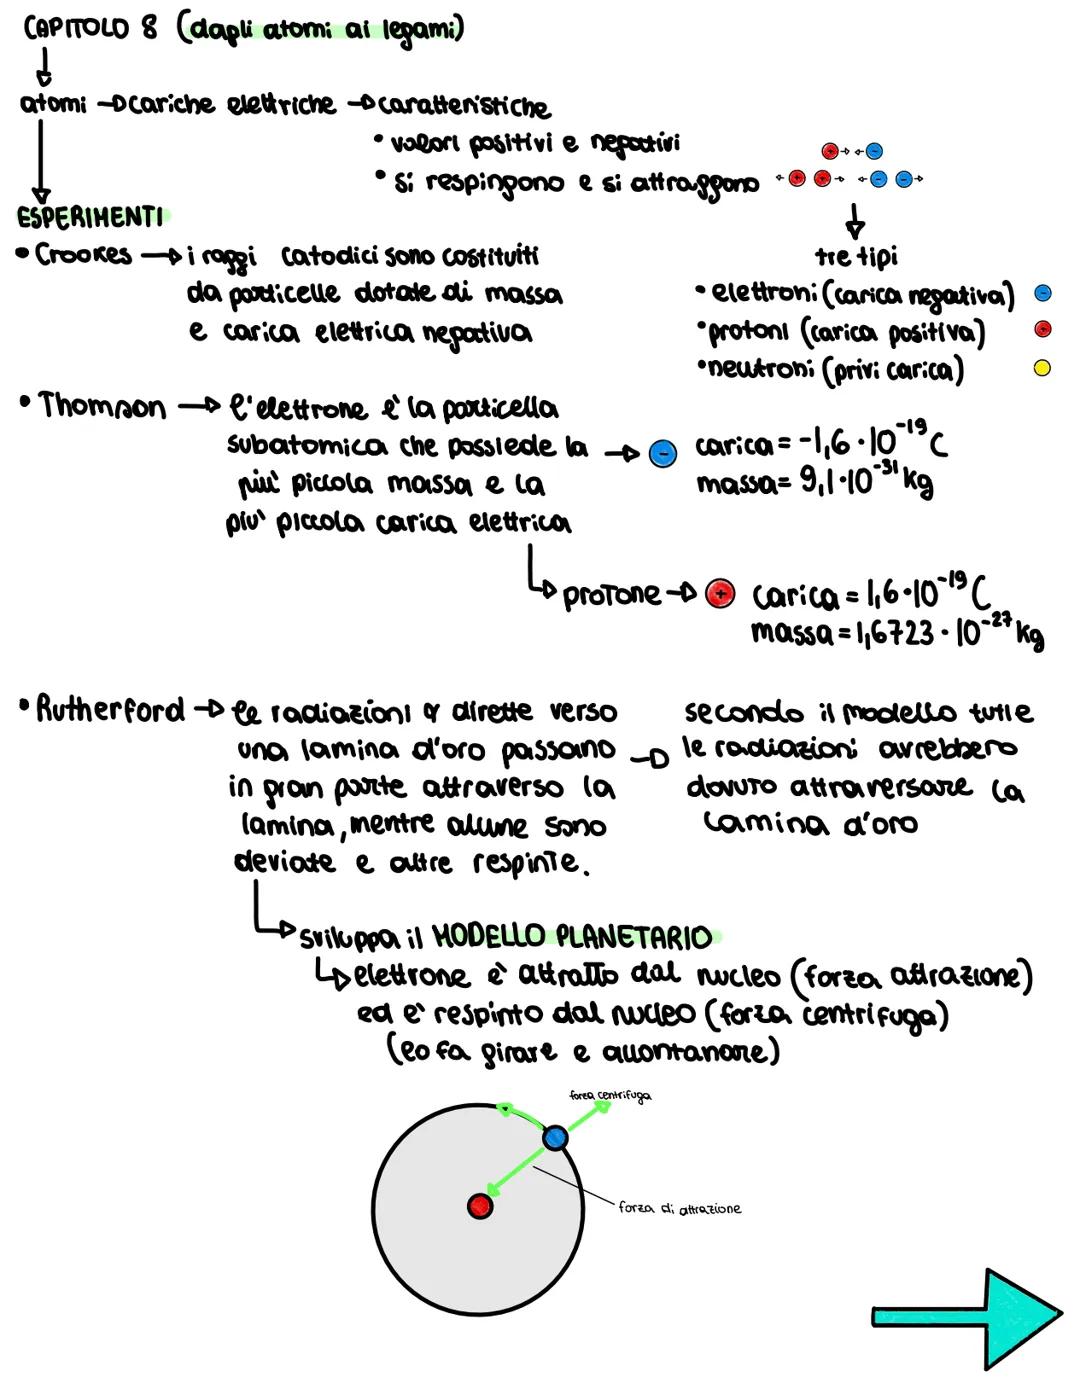 CAPITOLO 8 (dagli atomi ai legami)
atomi → cariche elettriche → caratteristiche
• valori positivi e negativi
• si respingono e si attraggono
+ → ← -
← + + → ← - - →
ESPERIMENTI
tre tipi
• elettroni (carica negativa) -
• protoni (carica positiva) +
• neutroni (privi carica)
• Crookes → i raggi catodici sono costituiti
da particelle dotate di massa
e carica elettrica negativa
• Thomson → l'elettrone e' la particella
subatomica che possiede la → -
piu' piccola massa e la
piu' piccola carica elettrica
carica = -1,6 · 10⁻¹⁹ C
massa = 9,1 · 10⁻³¹ kg
protone → + carica = 1,6 · 10⁻¹⁹ C
massa = 1,6723 · 10⁻²⁷ kg
• Rutherford → le radiazioni α dirette verso
una lamina d'oro passano →
in gran parte attraverso la
lamina, mentre alcune sono
deviate e altre respinte.
secondo il modello tutte
le radiazioni avrebbero
dovuto attraversare la
lamina d'oro
sviluppa il MODELLO PLANETARIO
elettrone e' attratto dal nucleo (forza attrazione)
ed e' respinto dal nucleo (forza centrifuga)
(lo fa girare e allontanare)
forza centrifuga
forza di attrazione